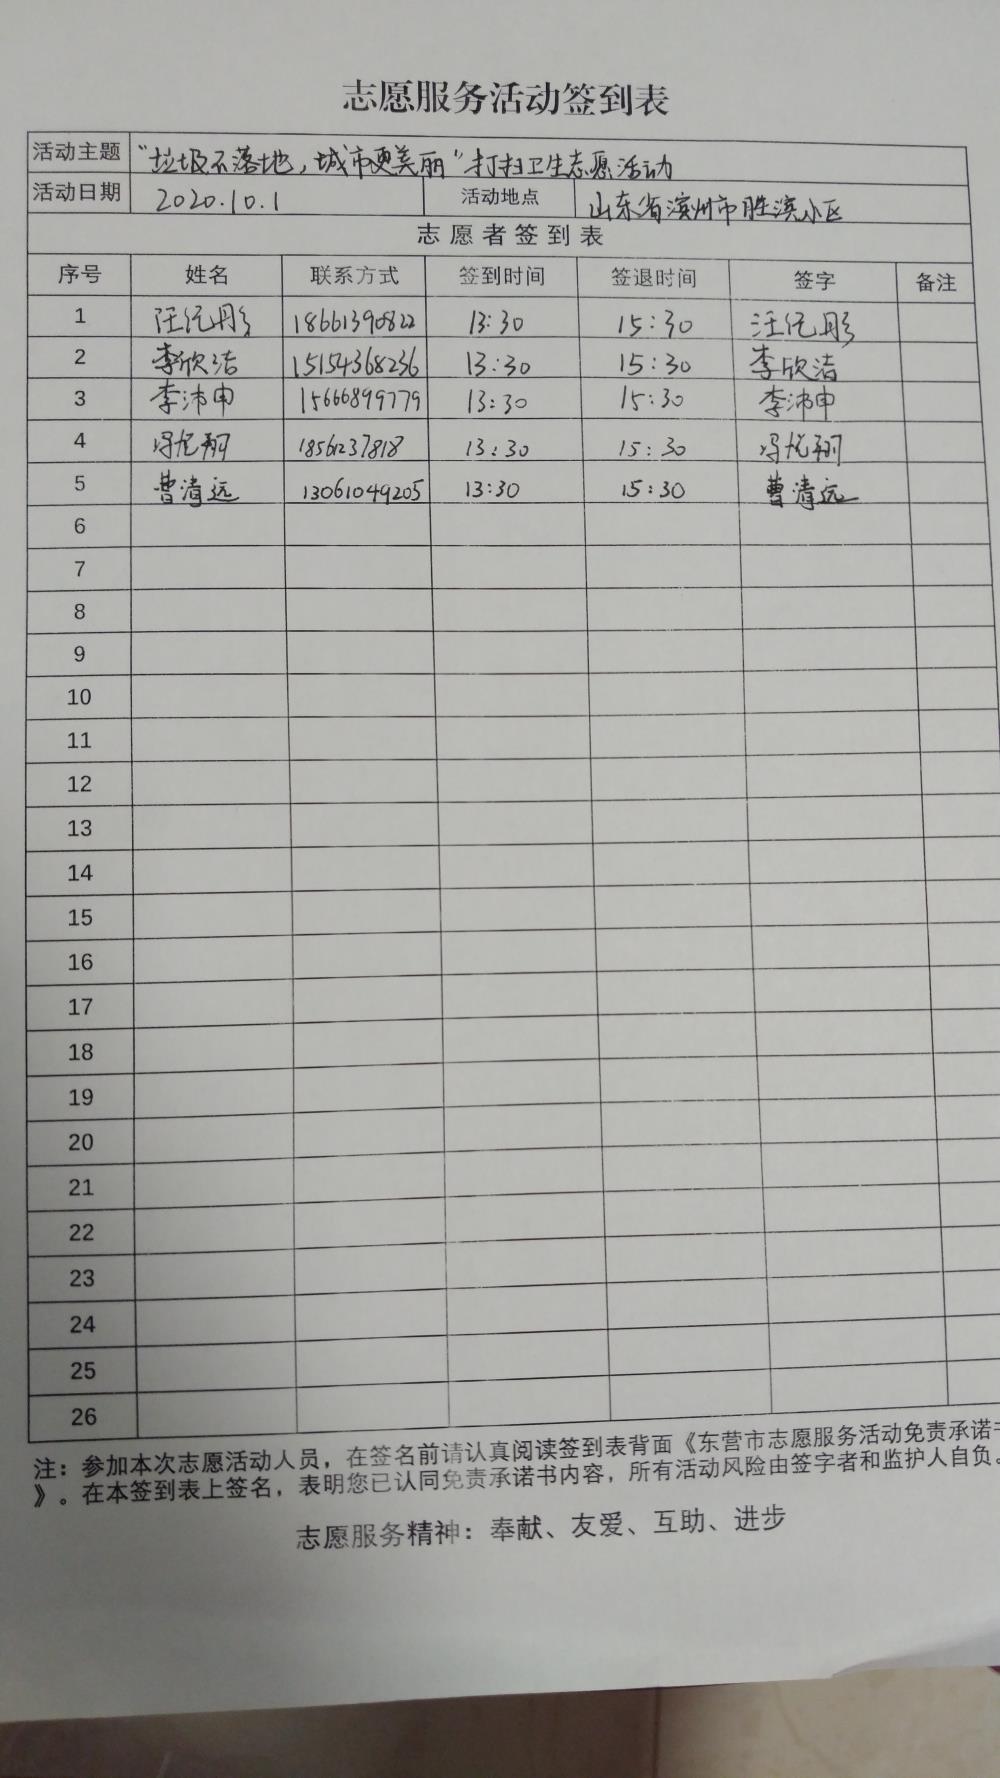 志愿服务活动签到表
活动主题 “垃圾不落地，城市更美丽”打扫卫生志愿活动
活动日期 2020.10.1 活动地点 山东省滨州市胜滨小区
志愿者签到表
序号 姓名 联系方式 签到时间 签退时间 签字 备注
1 18661390822 13:30 15:30
2 李欣洁 15154368236 13:30 15:30 李欣洁
3 李沛申 15666899779 13:30 15:30 李沛申
4 18561237818 13:30 15:30
5 曹清远 13061049205 13:30 15:30 曹清远
6
7
8
9
10
11
12
13
14
15
16
17
18
19
20
21
22
23
24
25
26
注：参加本次志愿活动人员，在签名前请认真阅读签到表背面《东营市志愿服务活动免责承诺书
》。在本签到表上签名，表明您已认同免责承诺书内容，所有活动风险由签字者和监护人自负。
志愿服务精神：奉献、友爱、互助、进步